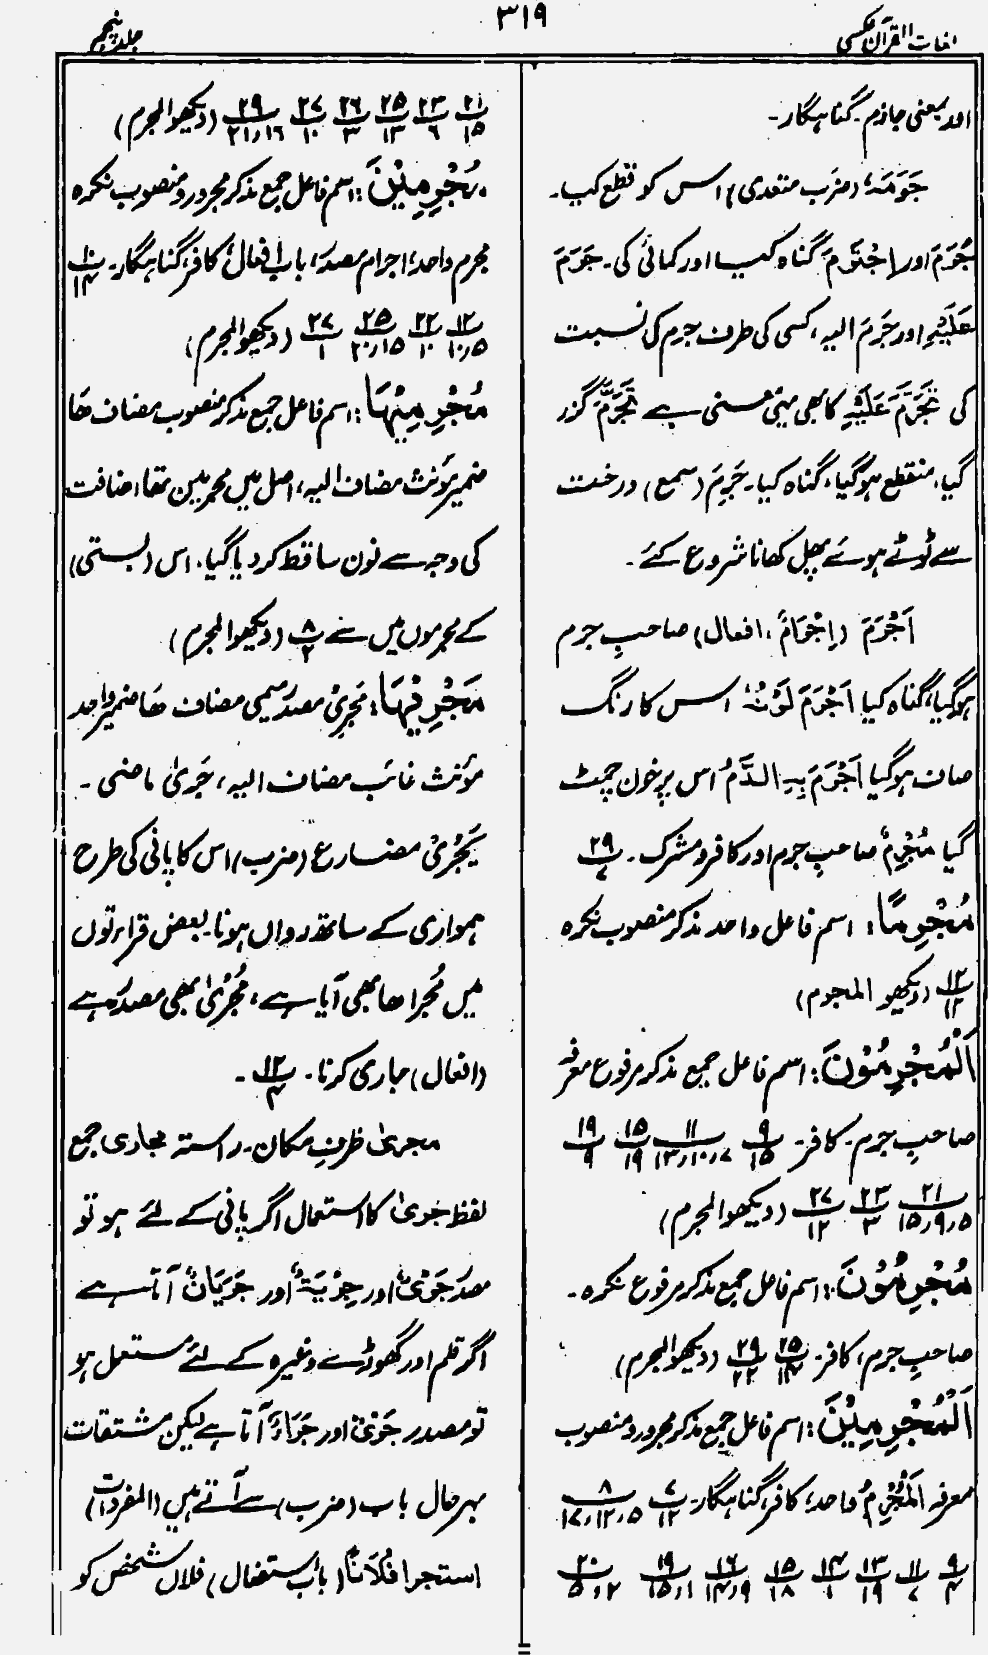 لغات القرآن عکسی
۳۱۹
جلد پنجم
اور بمعنی جازم۔ گناہگار۔
جَرَمَہٗ (ضرب متعدی) اس کو قطع کیا۔
جَرَمَ اور اِجْتَرَمَ گناہ کیا اور کمائی کی۔ جَرَمَ
عَلَیْہِ اور جَرَمَ الیہ، کسی کی طرف جرم کی نسبت
کی تَجَرَّمَ عَلَیْہِ کا بھی یہی معنی ہے تَجَرَّمَ گزر
گیا، منقطع ہوگیا، گناہ کیا۔ جَرِمَ (سمع) درخت
سے ٹوٹے ہوئے پھل کھانا شروع کئے۔
اَجْرَمَ (اِجْرَامٌ، افعال) صاحبِ جرم
ہوگیا، گناہ کیا اَجْرَمَ لَوْنُہٗ اس کا رنگ
صاف ہوگیا اَجْرَمَ بِہِ الدَّمُ اس پر خون چمٹ
گیا مُجْرِمٌ صاحبِ جرم اور کافر و مشرک۔ ۲۹/۷
مُجْرِمًا: اسم فاعل واحد مذکر منصوب نکرہ
۱۲/۱۲ (دیکھو المجرم)
اَلْمُجْرِمُوْنَ: اسم فاعل جمع مذکر مرفوع معرفہ
صاحبِ جرم۔ کافر۔ ۹/۱۵ ۱۱/۷،۱۰،۱۳ ۱۵/۱۹ ۱۹/۹
۲۱/۵،۹،۱۵ ۲۳/۳ ۲۷/۱۲ (دیکھو المجرم)
مُجْرِمُوْنَ: اسم فاعل جمع مذکر مرفوع نکرہ۔
صاحبِ جرم، کافر۔ ۲۵/۱۴ ۲۹/۲۲ (دیکھو المجرم)
اَلْمُجْرِمِیْنَ: اسم فاعل جمع مذکر مجرور و منصوب
معرفہ اَلْمُجْرِمُ واحد، کافر، گناہگار۔ ۷/۱۲ ۸/۵،۱۲،۱۷
۹/۴ ۱۱/۷ ۱۳/۱۹ ۱۴/۱ ۱۵/۱۸ ۱۶/۹،۱۴ ۱۹/۱،۱۵ ۲۰/۲،۵
۲۱/۱۵ ۲۳/۶ ۲۵/۱۳ ۲۶/۳ ۲۷/۱۰ ۲۹/۱۶،۲۱ (دیکھو المجرم)
مُجْرِمِیْنَ: اسم فاعل جمع مذکر مجرور و منصوب نکرہ
مجرم واحد، اجرام مصدر، باب افعال، کافر، گناہگار۔ ۱۰/۱۴
۱۲/۵،۱۰ ۲۲/۱۰ ۲۵/۱۵،۲۰ ۲۷/۱ (دیکھو المجرم)
مُجْرِمِیْہَا: اسم فاعل جمع مذکر منصوب مضاف ھا
ضمیر مؤنث مضاف الیہ، اصل میں مجرمین تھا، اضافت
کی وجہ سے نون ساقط کر دیا گیا۔ اس (بستی)
کے مجرموں میں سے ۸/۲ (دیکھو المجرم)
مَجْرٖیہَا: مَجْرِیْ مصدر میمی مضاف ھا ضمیر واحد
مؤنث غائب مضاف الیہ، جَریٰ ماضی۔
یَجْرِیْ مضارع (ضرب) اس کا پانی کی طرح
ہمواری کے ساتھ رواں ہونا۔ بعض قراءتوں
میں مُجراھا بھی آیا ہے، مُجْرٰی بھی مصدر ہے
(افعال) جاری کرنا۔ ۱۲/۴۔
مجریٰ ظرفِ مکان۔ راستہ مجاری جمع
لفظ جریٰ کا استعمال اگر پانی کے لئے ہو تو
مصدر جَرْیٌ اور جِرْیَۃٌ اور جَرَیَانٌ آتا ہے
اگر قلم اور گھوڑے وغیرہ کے لئے مستعمل ہو
تو مصدر جَرْیٌ اور جَرَاءٌ آتا ہے لیکن مشتقات
بہرحال باب (ضرب) سے آتے ہیں (المفردات)
استجرا فُلَانًا (باب استفعال) فلاں شخص کو